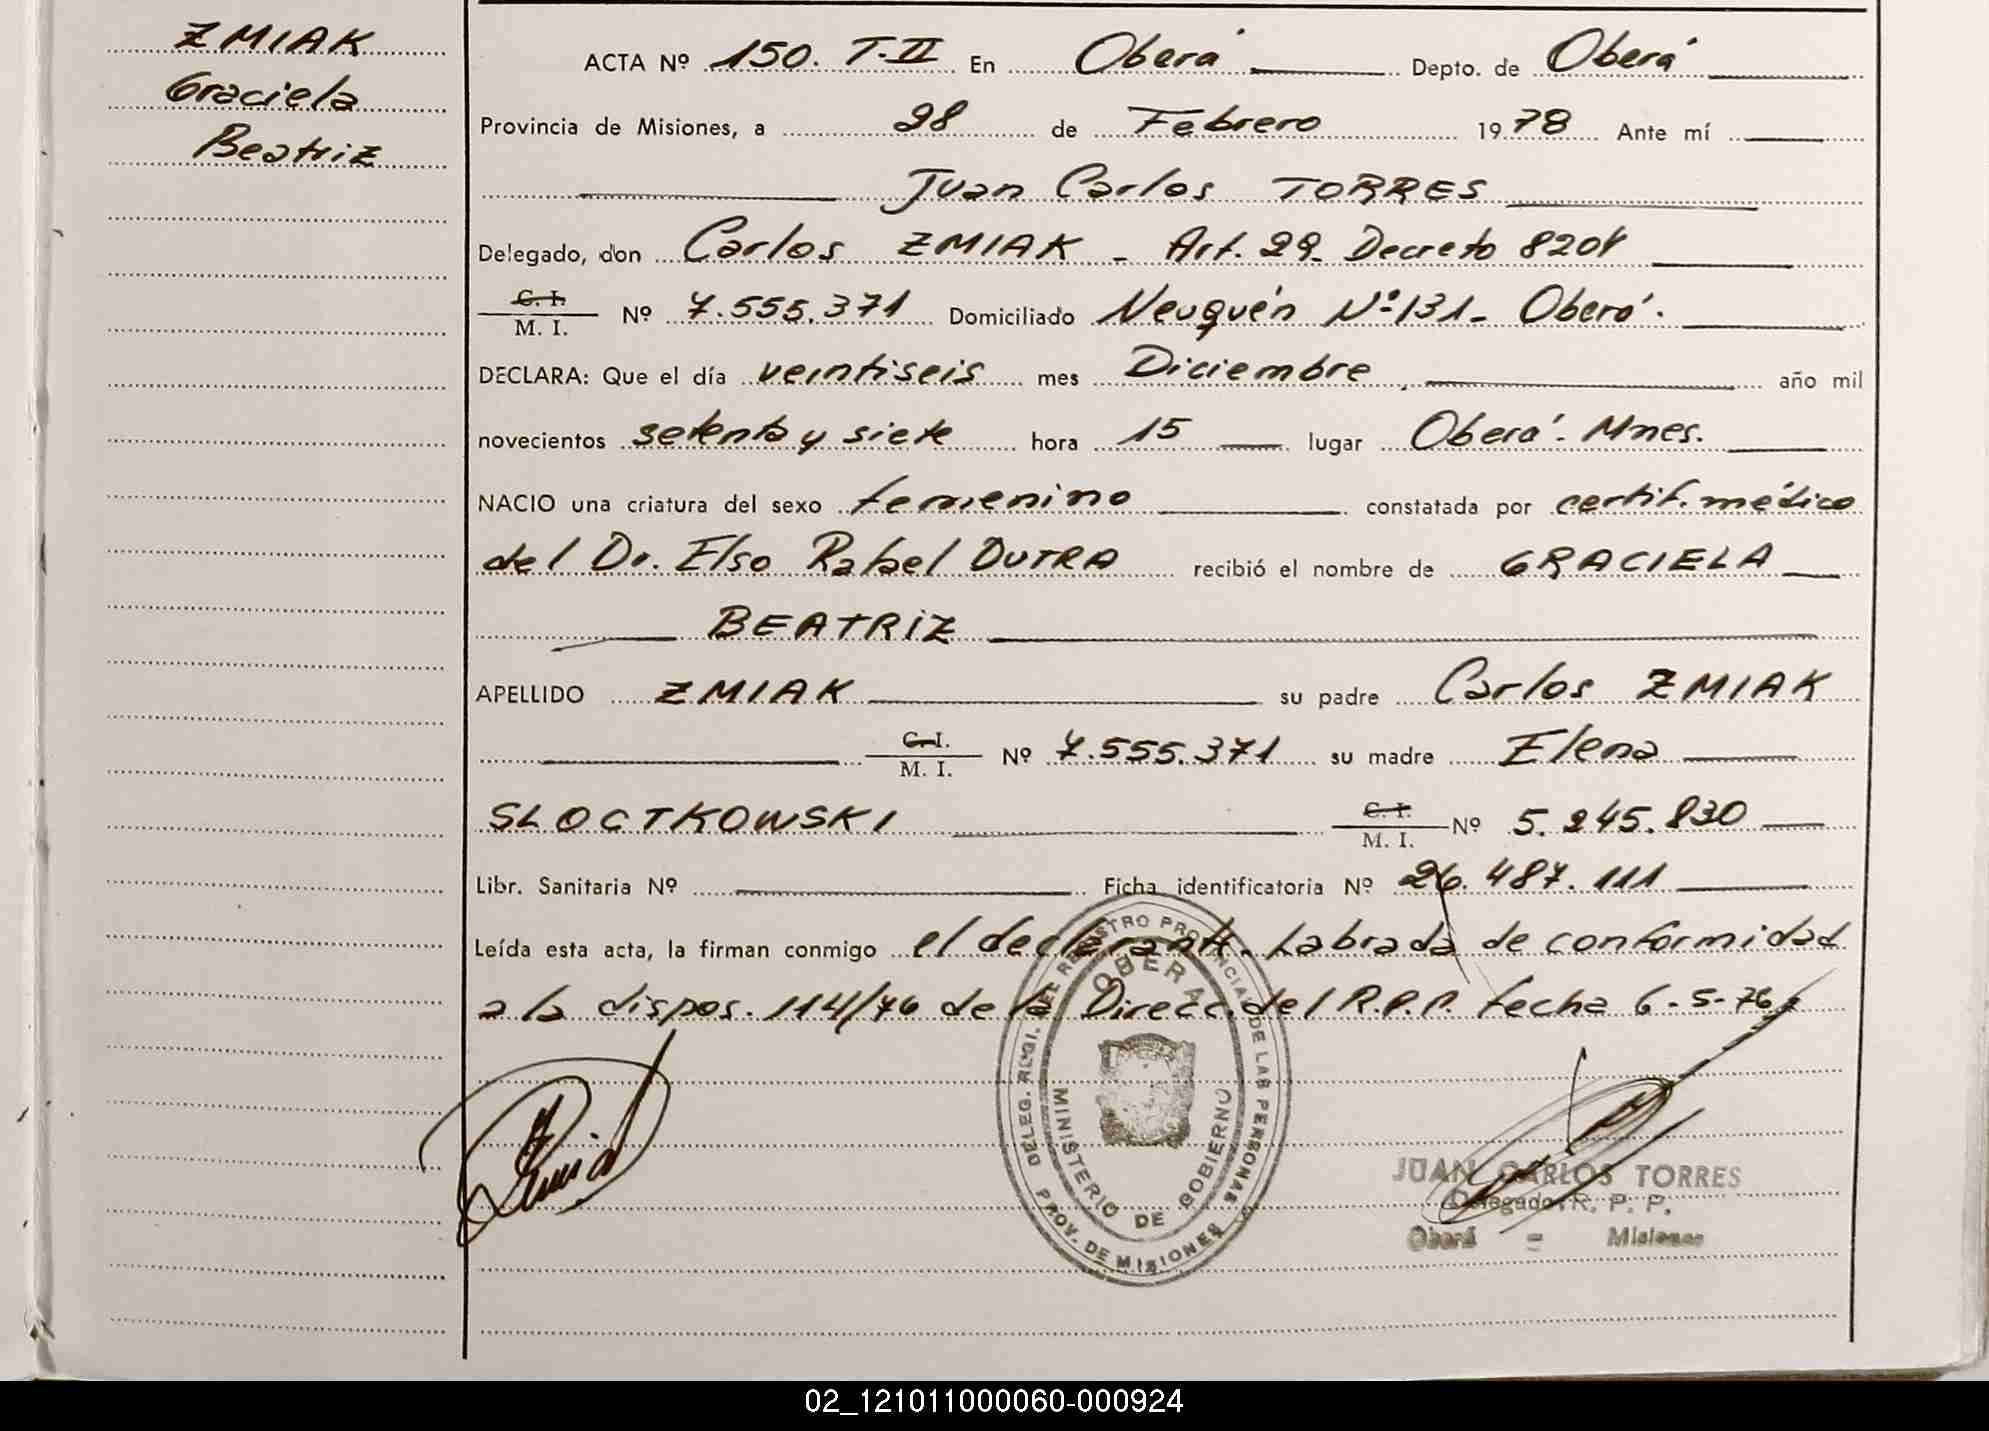 ZMIAK
Graciela
Beatriz
ACTA Nº 150. T-II En Oberá Depto. de Oberá
Provincia de Misiones, a 28 de Febrero 1978 Ante mí
Juan Carlos TORRES
Delegado, don Carlos ZMIAK - Art. 29- Decreto 8204
C. I.
M. I. Nº 7.555.371 Domiciliado Neuquén Nº 131- Oberá.
DECLARA: Que el día veintiseis mes Diciembre año mil
novecientos setenta y siete hora 15 lugar Oberá. Mnes.
NACIO una criatura del sexo femenino constatada por certif. médico
del Dr. Elso Rafael DUTRA recibió el nombre de GRACIELA
BEATRIZ
APELLIDO ZMIAK su padre Carlos ZMIAK
C. I.
M. I. Nº 7.555.371 su madre Elena
SLOCTKOWSKI C. I.
M. I. Nº 5.245.830
Libr. Sanitaria Nº Ficha identificatoria Nº 26.487.111
Leída esta acta, la firman conmigo el declarante. Labrada de conformidad
a la dispos. 114/76 de la Direcc. del R.P.P. fecha 6-5-76
DELEG. REGI. DEL REGISTRO PROVINCIAL DE LAS PERSONAS
OBERA
MINISTERIO DE GOBIERNO
PROV. DE MISIONES
JUAN CARLOS TORRES
Delegado R. P. P.
Oberá - Misiones
02_121011000060-000924